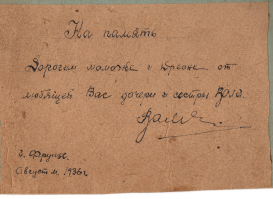 На память
Дорогой мамочке и от
любящей Вас дочери и сестры Вали.
г. Фрунзе.
Август м. 1936 г